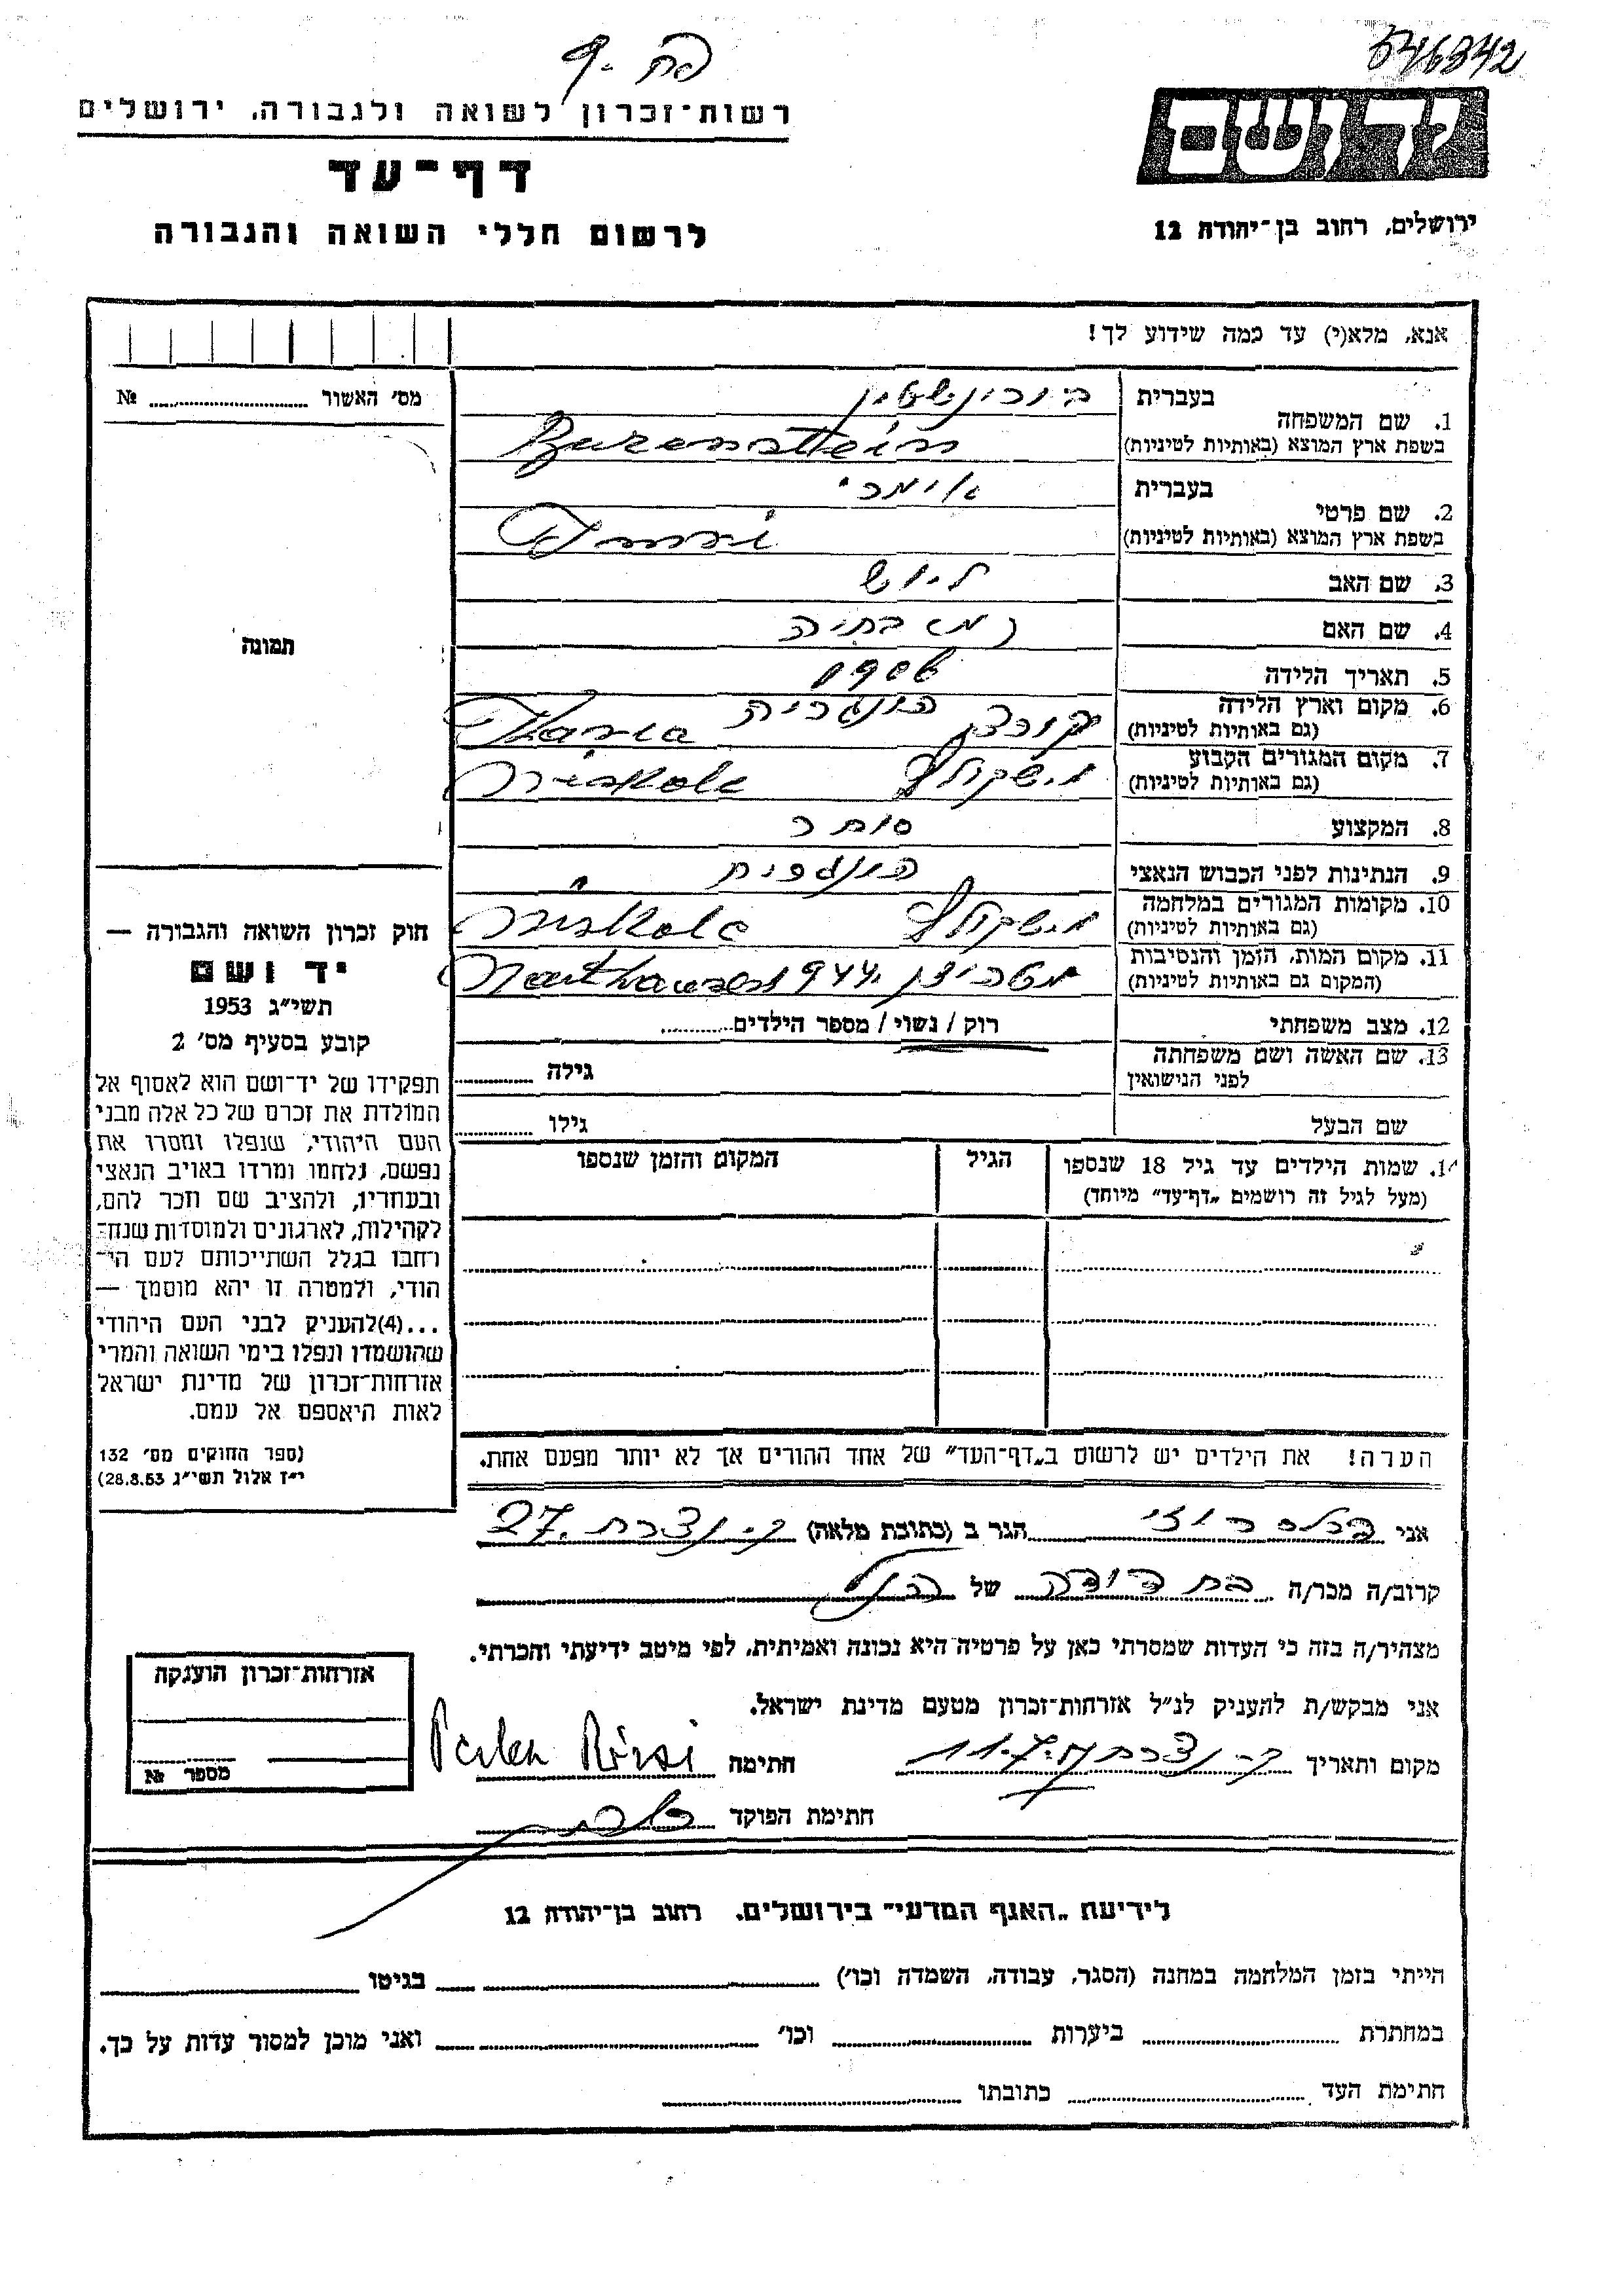 546342
פה. ק
רשות־זכרון לשואה ולגבורה, ירושלים
דף־עד
לרשום חללי השואה והגבורה
יד ושם
ירושלים, רחוב בן־יהודה 12
אנא, מלא(י) עד כמה שידוע לך!
מס' האשור № 
תמונה
1. שם המשפחה
בעברית בורנשטיין
בשפת ארץ המוצא (באותיות לטיניות) Burenstein
2. שם פרטי
בעברית אימרי
בשפת ארץ המוצא (באותיות לטיניות) Imri
3. שם האב ליוש
4. שם האם
5. תאריך הלידה 1906
6. מקום וארץ הלידה הונגריה
(גם באותיות לטיניות)
7. מקום המגורים הקבוע מישקולץ
(גם באותיות לטיניות) Miskolc
8. המקצוע סוחר
9. הנתינות לפני הכבוש הנאצי הונגרית
10. מקומות המגורים במלחמה מישקולץ
(גם באותיות לטיניות) Miskolc
11. מקום המות, הזמן והנסיבות 1944
(המקום גם באותיות לטיניות) Mauthausen
12. מצב משפחתי רוק / נשוי / מספר הילדים
13. שם האשה ושם משפחתה
לפני הנישואין גילה
שם הבעל גילו
14. שמות הילדים עד גיל 18 שנספו הגיל המקום והזמן שנספו
(מעל לגיל זה רושמים „דף־עד" מיוחד)
הערה! את הילדים יש לרשום ב„דף־העד" של אחד ההורים אך לא יותר מפעם אחת.
חוק זכרון השואה והגבורה —
יד ושם
תשי"ג 1953
קובע בסעיף מס' 2
תפקידו של יד־ושם הוא לאסוף אל
המולדת את זכרם של כל אלה מבני
העם היהודי, שנפלו ומסרו את
נפשם, נלחמו ומרדו באויב הנאצי
ובעוזריו, ולהציב שם וזכר להם,
לקהילות, לארגונים ולמוסדות שנח־
רבו בגלל השתייכותם לעם הי־
הודי, ולמטרה זו יהא מוסמך —
...(4)להעניק לבני העם היהודי
שהושמדו ונפלו בימי השואה והמרי
אזרחות־זכרון של מדינת ישראל
לאות היאספם אל עמם.
(ספר החוקים מס' 132
י"ז אלול תשי"ג 28.8.53)
אני פרלס רוזי הגר ב (כתובת מלאה) ק. נצרת 27.
קרוב/ה מכר/ה בת דודה של הנ"ל
מצהיר/ה בזה כי העדות שמסרתי כאן על פרטיה היא נכונה ואמיתית, לפי מיטב ידיעתי והכרתי.
אני מבקש/ת להעניק לנ"ל אזרחות־זכרון מטעם מדינת ישראל.
מקום ותאריך ק. נצרת חתימה Perlesz Rózsi
חתימת הפוקד
אזרחות־זכרון הוענקה
מספר №
לידיעת „האגף המדעי" בירושלים, רחוב בן־יהודה 12
הייתי בזמן המלחמה במחנה (הסגר, עבודה, השמדה וכו') בגיטו
במחתרת ביערות וכו' ואני מוכן למסור עדות על כך.
חתימת העד כתובתו